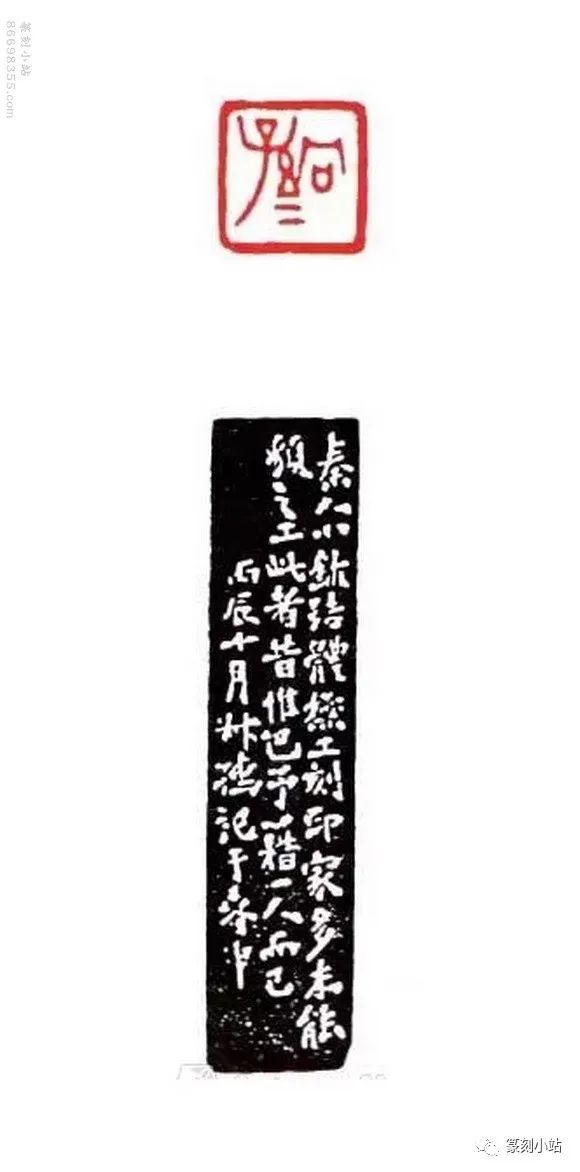 篆刻小站
86698355.com
秦人小鉨結體極工刻印家多未能
類之工此者昔惟巴予藉一人而已
丙辰十月叔孺記于春申
篆刻小站